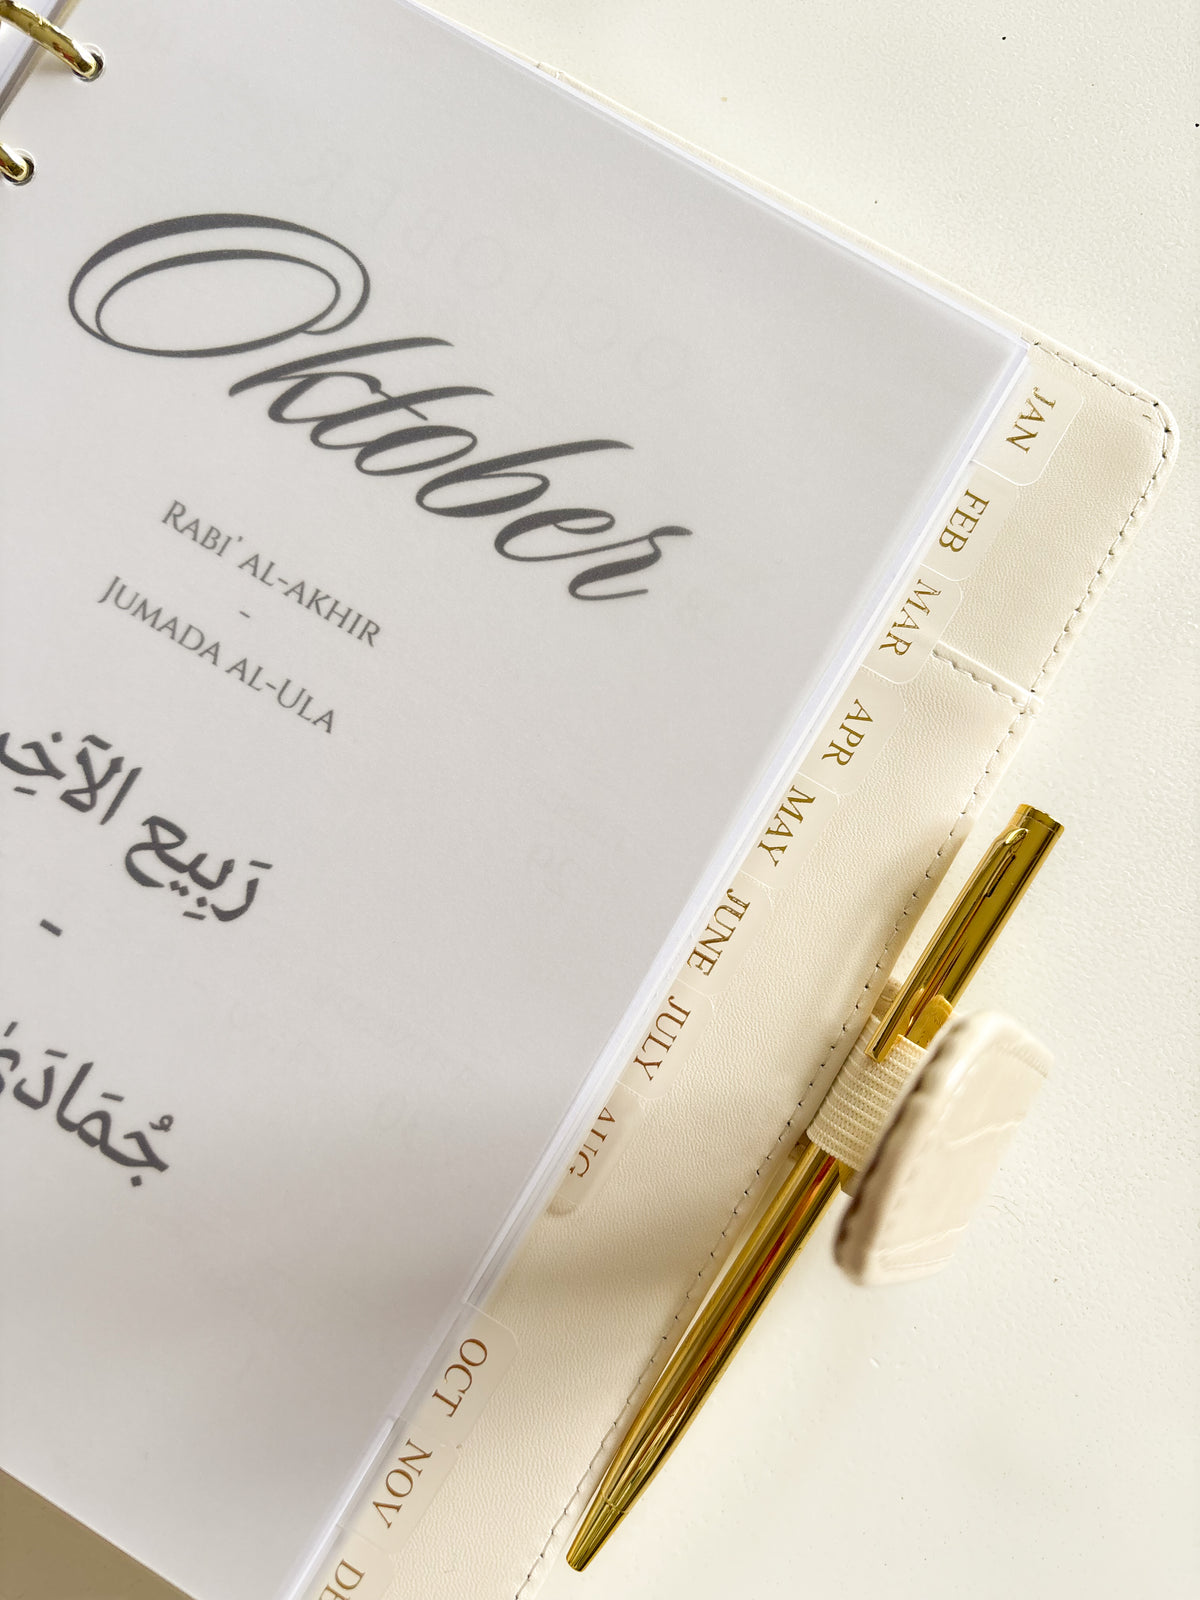 Oktober
RABI' AL-AKHIR
-
JUMADA AL-ULA
رَبِيع
-
JAN
FEB
MAR
APR
MAY
JUNE
JULY
AUG
OCT
NOV